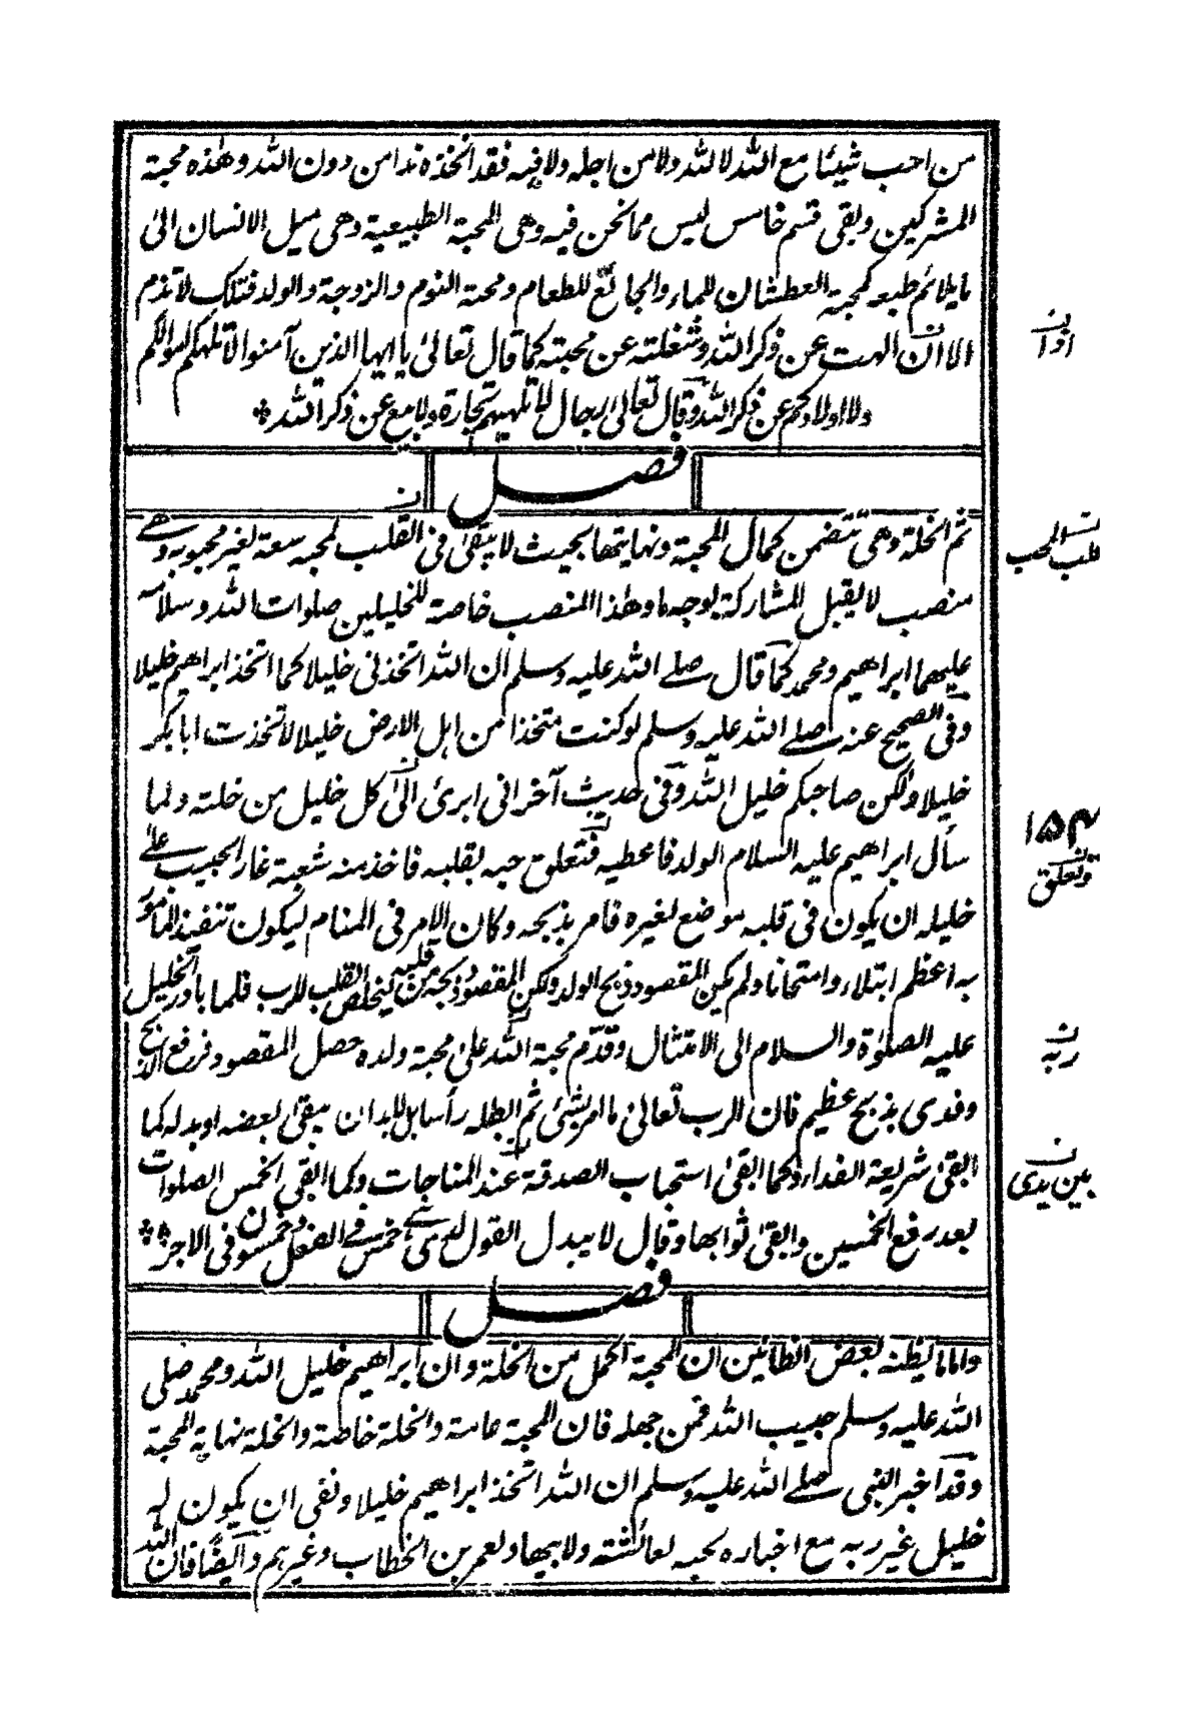 من احب شيئا مع الله لا لله ولا من اجله ولا فيه فقد اتخذه ندا من دون الله وهذه محبة
المشركين وبقى قسم خامس ليس مما نحن فيه وهى المحبة الطبيعية وهى ميل الانسان الى
ما يلائم طبعه كمحبة العطشان للماء والجائع للطعام ومحبة النوم والزوجة والولد فتلك لا تذم
الا ان الهت عن ذكر الله وشغلته عن محبته كما قال تعالى يا ايها الذين آمنوا لا تلهكم اموالكم
ولا اولادكم عن ذكر الله وقال تعالى رجال لا تلهيهم تجارة ولا بيع عن ذكر الله
فصل
ثم الخلة وهى تتضمن كمال المحبة ونهايتها بحيث لا يبقى فى القلب لمحبه سعة لغير محبوبه وهى
منصب لا يقبل المشاركة بوجه ما وهذا المنصب خاصة للخليلين صلوات الله وسلامه
عليهما ابراهيم ومحمد كما قال صلى الله عليه وسلم ان الله اتخذنى خليلا كما اتخذ ابراهيم خليلا
وفى الصحيح عنه صلى الله عليه وسلم لو كنت متخذا من اهل الارض خليلا لاتخذت ابا بكر
خليلا ولكن صاحبكم خليل الله وفى حديث آخر انى ابرئ الى كل خليل من خلته ولما
سأل ابراهيم عليه السلام الولد فاعطيه فتعلق حبه بقلبه فاخذ منه شعبة غار الحبيب على
خليله ان يكون فى قلبه موضع لغيره فامر بذبحه وكان الامر فى المنام ليكون تنفيذ المأمور
به اعظم ابتلاء وامتحانا ولم يكن المقصود ذبح الولد ولكن المقصود ذبحه من قلبه ليخلص القلب للرب فلما بادر الخليل
عليه الصلوة والسلام الى الامتثال وقدم محبة الله على محبة ولده حصل المقصود فرفع الذبح
وفدى بذبح عظيم فان الرب تعالى ما امر بشئ ثم ابطله رأسا بل لا بد ان يبقى بعضه او بدله كما
ابقى شريعة الفداء وكما ابقى استحباب الصدقة عند المناجات وكما ابقى الخمس الصلوات
بعد رفع الخمسين وابقى ثوابها وقال لا يبدل القول لدى هى خمس فى الفعل وخمسون فى الاجر
فصل
واما ما يظنه بعض الظانين ان المحبة اكمل من الخلة وان ابراهيم خليل الله ومحمد صلى
الله عليه وسلم حبيب الله فمن جهله فان المحبة عامة والخلة خاصة والخلة نهاية المحبة
وقد اخبر النبى صلى الله عليه وسلم ان الله اتخذ ابراهيم خليلا ونفى ان يكون له
خليل غير ربه مع اخباره بحبه لعائشة ولابيها ولعمر بن الخطاب وغيرهم وايضا فان الله
اذا ن
قلب المحب
وتعلق ن
ربه ن
بين يدى ن